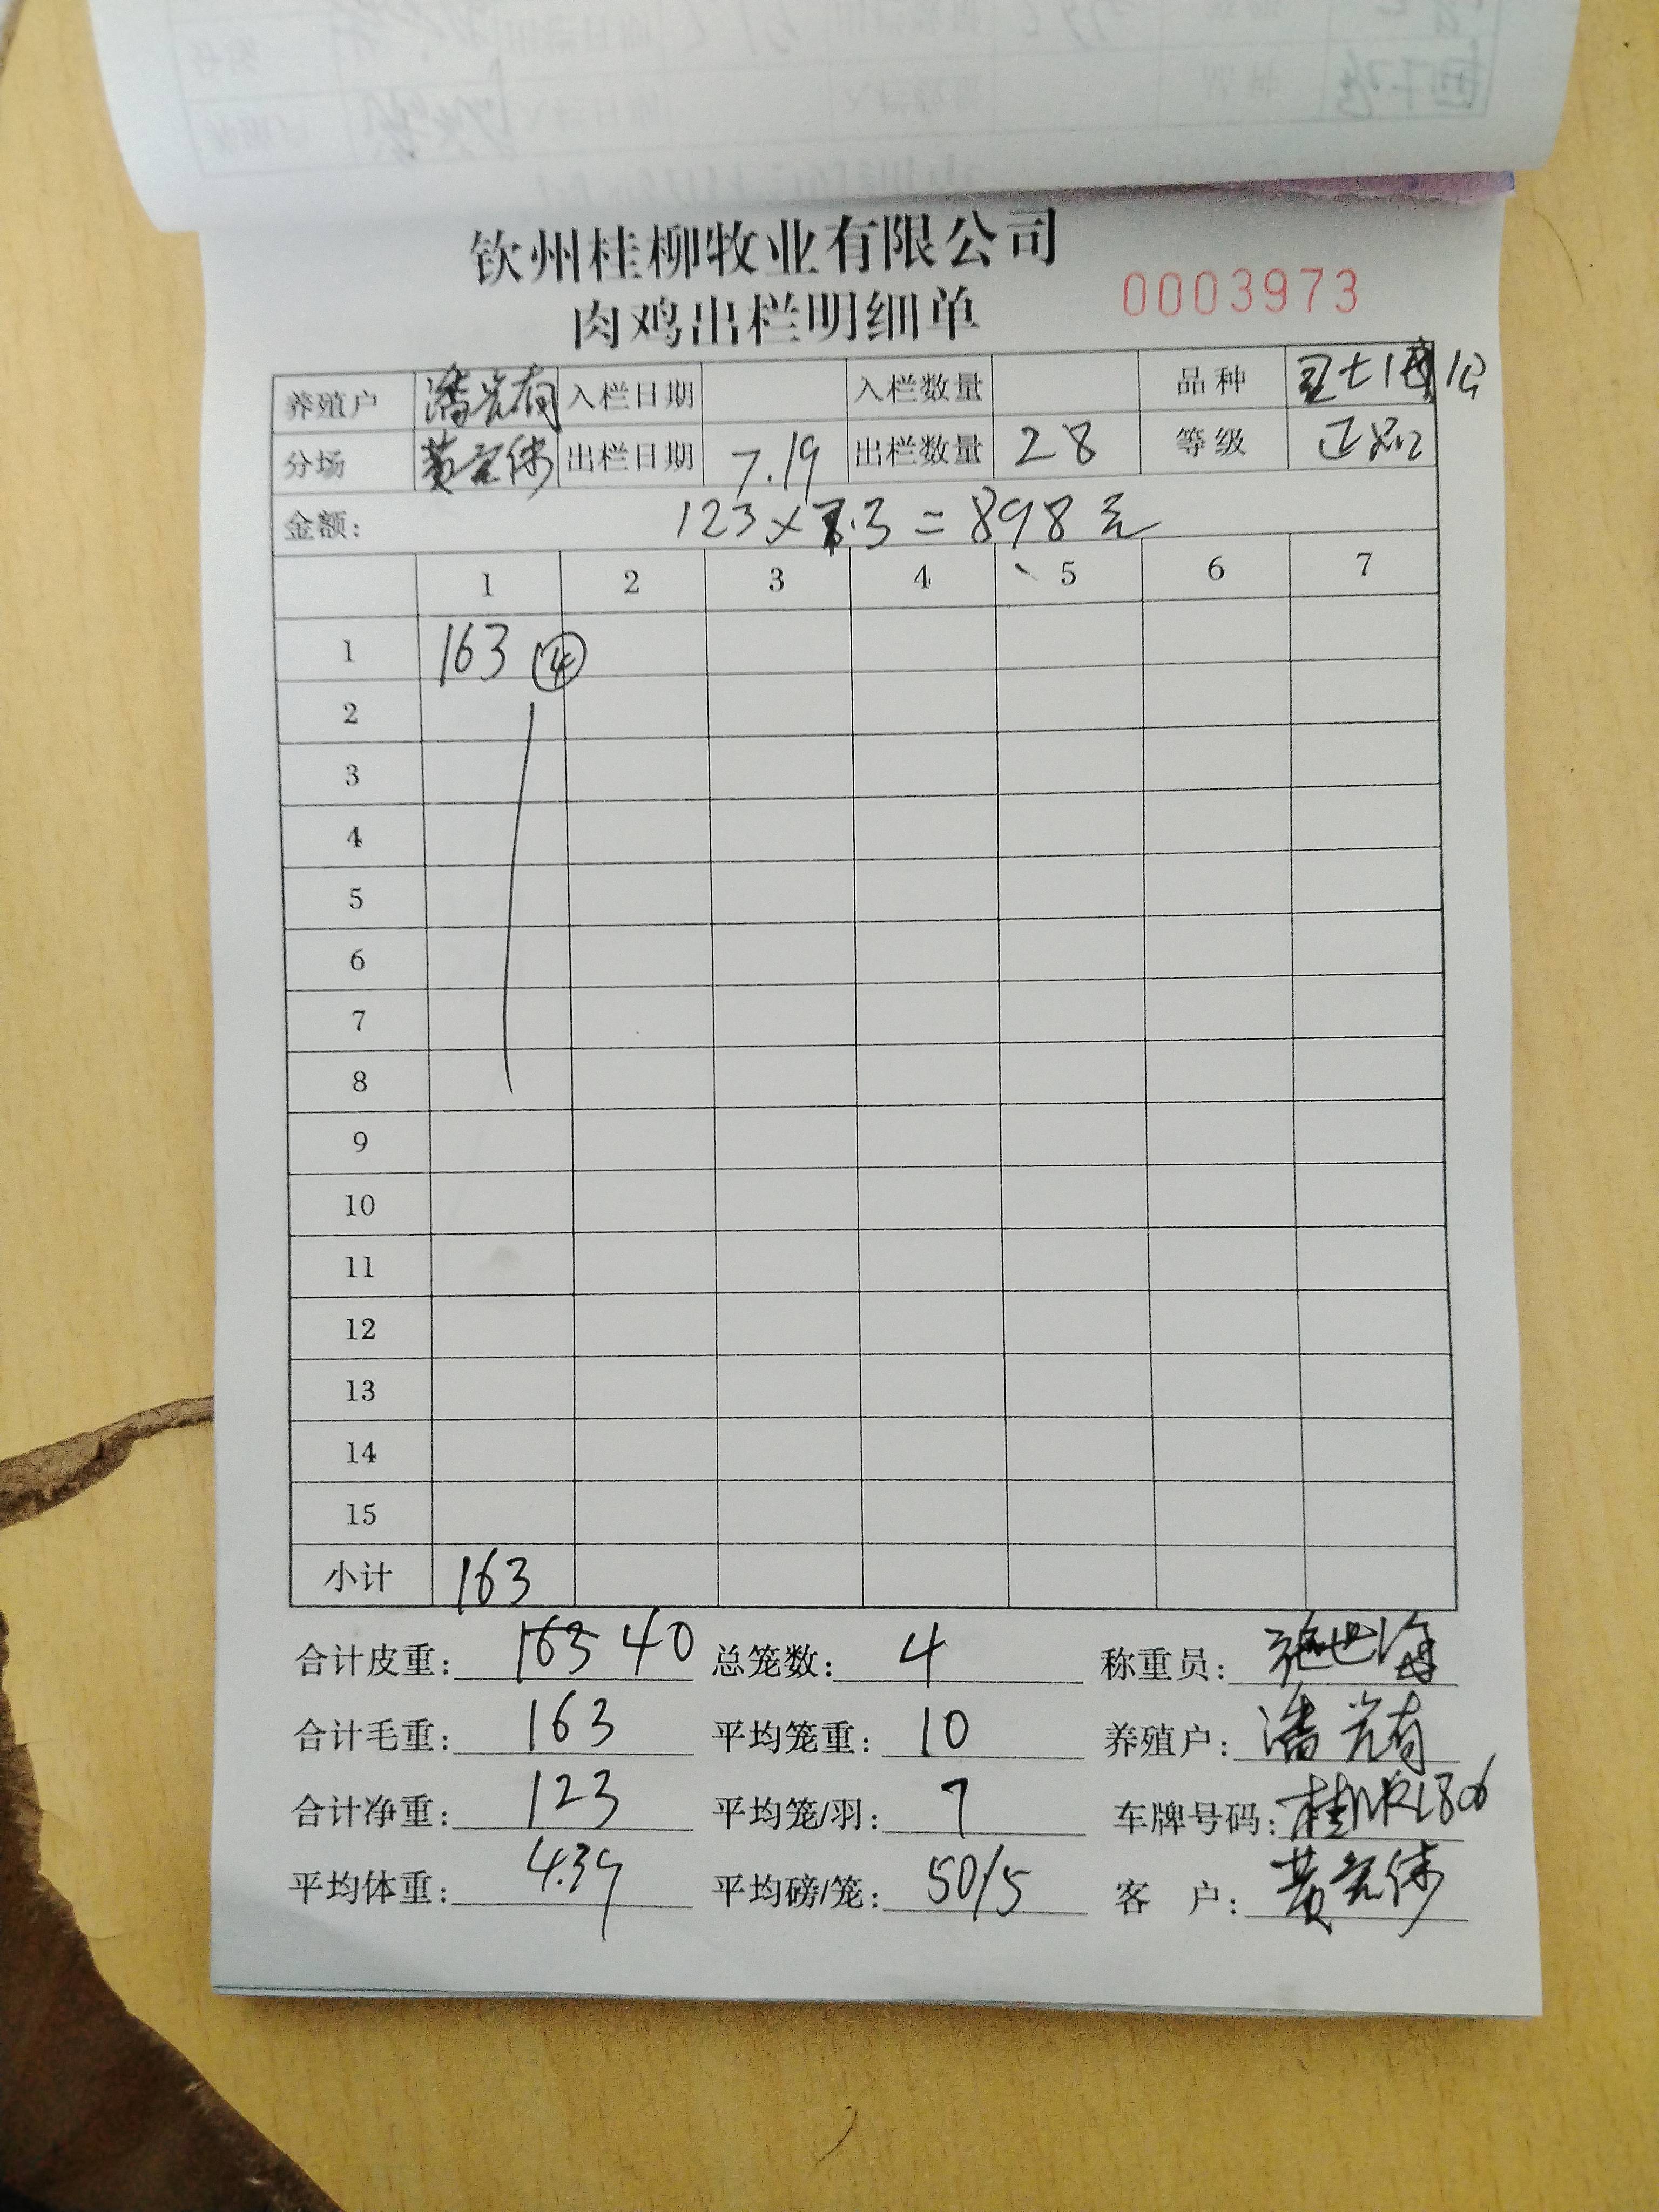 钦州桂柳牧业有限公司
肉鸡出栏明细单 0003973
养殖户 潘光有 入栏日期 入栏数量 品种
分场 黄宏伟 出栏日期 7.19 出栏数量 28 等级 正品
金额: 123×7.3=898元
1 2 3 4 5 6 7
1 163 ④
2
3
4
5
6
7
8
9
10
11
12
13
14
15
小计 163
合计皮重: 163 40 总笼数: 4 称重员:
合计毛重: 163 平均笼重: 10 养殖户: 潘光有
合计净重: 123 平均笼/羽: 7 车牌号码:
平均体重: 4.39 平均磅/笼: 50/5 客 户: 黄宏伟